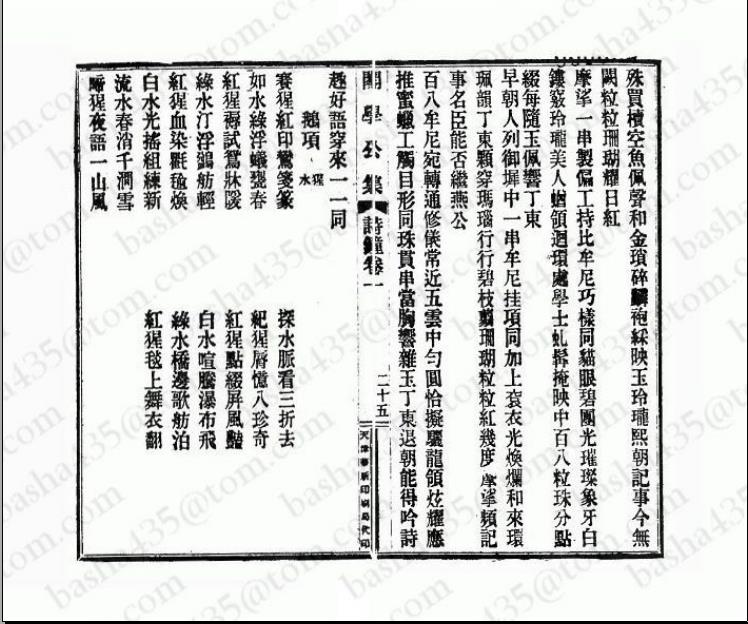 殊買櫝空魚佩聲和金瑣碎麟袍綵映玉玲瓏熙朝記事今無
闕粒粒珊瑚耀日紅
摩挲一串製偏工持比牟尼巧樣同貓眼碧團光璀璨象牙白
鏤竅玲瓏美人蝤領迴環處學士虬髯掩映中百八粒珠分點
綴每隨玉佩響丁東
早朝人列御墀中一串牟尼挂項同加上袞衣光煥爛和來環
珮韻丁東顆穿瑪瑙行行碧枝翦珊瑚粒粒紅幾度摩挲頻記
事名臣能否繼燕公
百八牟尼宛轉通修儀常近五雲中勻圓恰擬驪龍領炫耀應
推蜜蠟工觸目形同珠貫串當胸響雜玉丁東退朝能得吟詩
閣學公集 詩鐘卷一 二十五 天津華新印刷局代印
趣好語穿來一一同
鵝項 猩水
賽猩紅印鸞箋篆 探水脈看三折去
如水綠浮蟻甕春 紀猩脣憶八珍奇
紅猩褥試鴛牀煖 紅猩點綴屏風豔
綠水汀浮鷁舫輕 白水喧騰瀑布飛
紅猩血染氍毹煥 綠水橋邊歌舫泊
白水光搖組練新 紅猩毯上舞衣翻
流水春消千澗雪
啼猩夜語一山風
basha435@tom.com